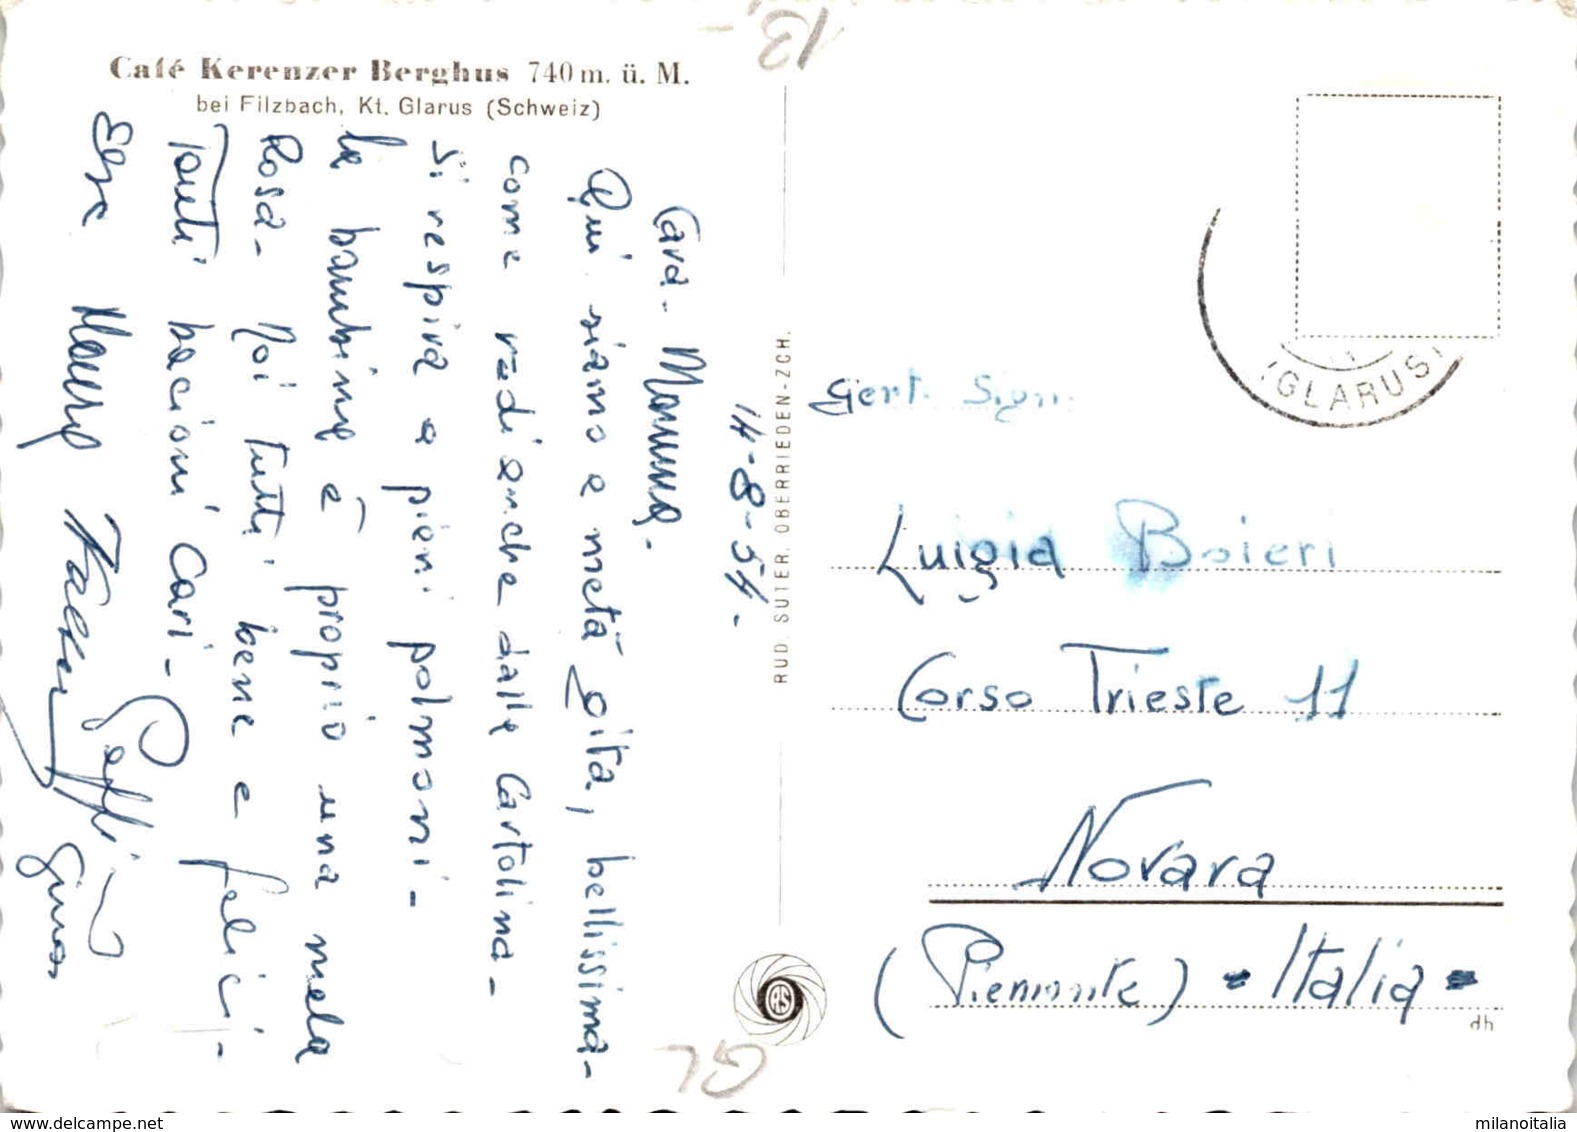 Café Kerenzer Berghus 740 m. ü. M.
bei Filzbach, Kt. Glarus (Schweiz)
14-8-54-
Cara- Mamma-
Qui siamo a metà gita, bellissima-
come vedi anche dalla Cartolina-
Si respira a pieni polmoni-
la bambina é proprio una mela
Rosa- Noi tutti bene e felici-
Tanti bacioni Cari-
RUD. SUTER, OBERRIEDEN-ZCH.
(GLARUS)
Gent. Sign.
Luigia Boieri
Corso Trieste 11
Novara
(Piemonte) - Italia -
dh
13-
GL
milanoitalia